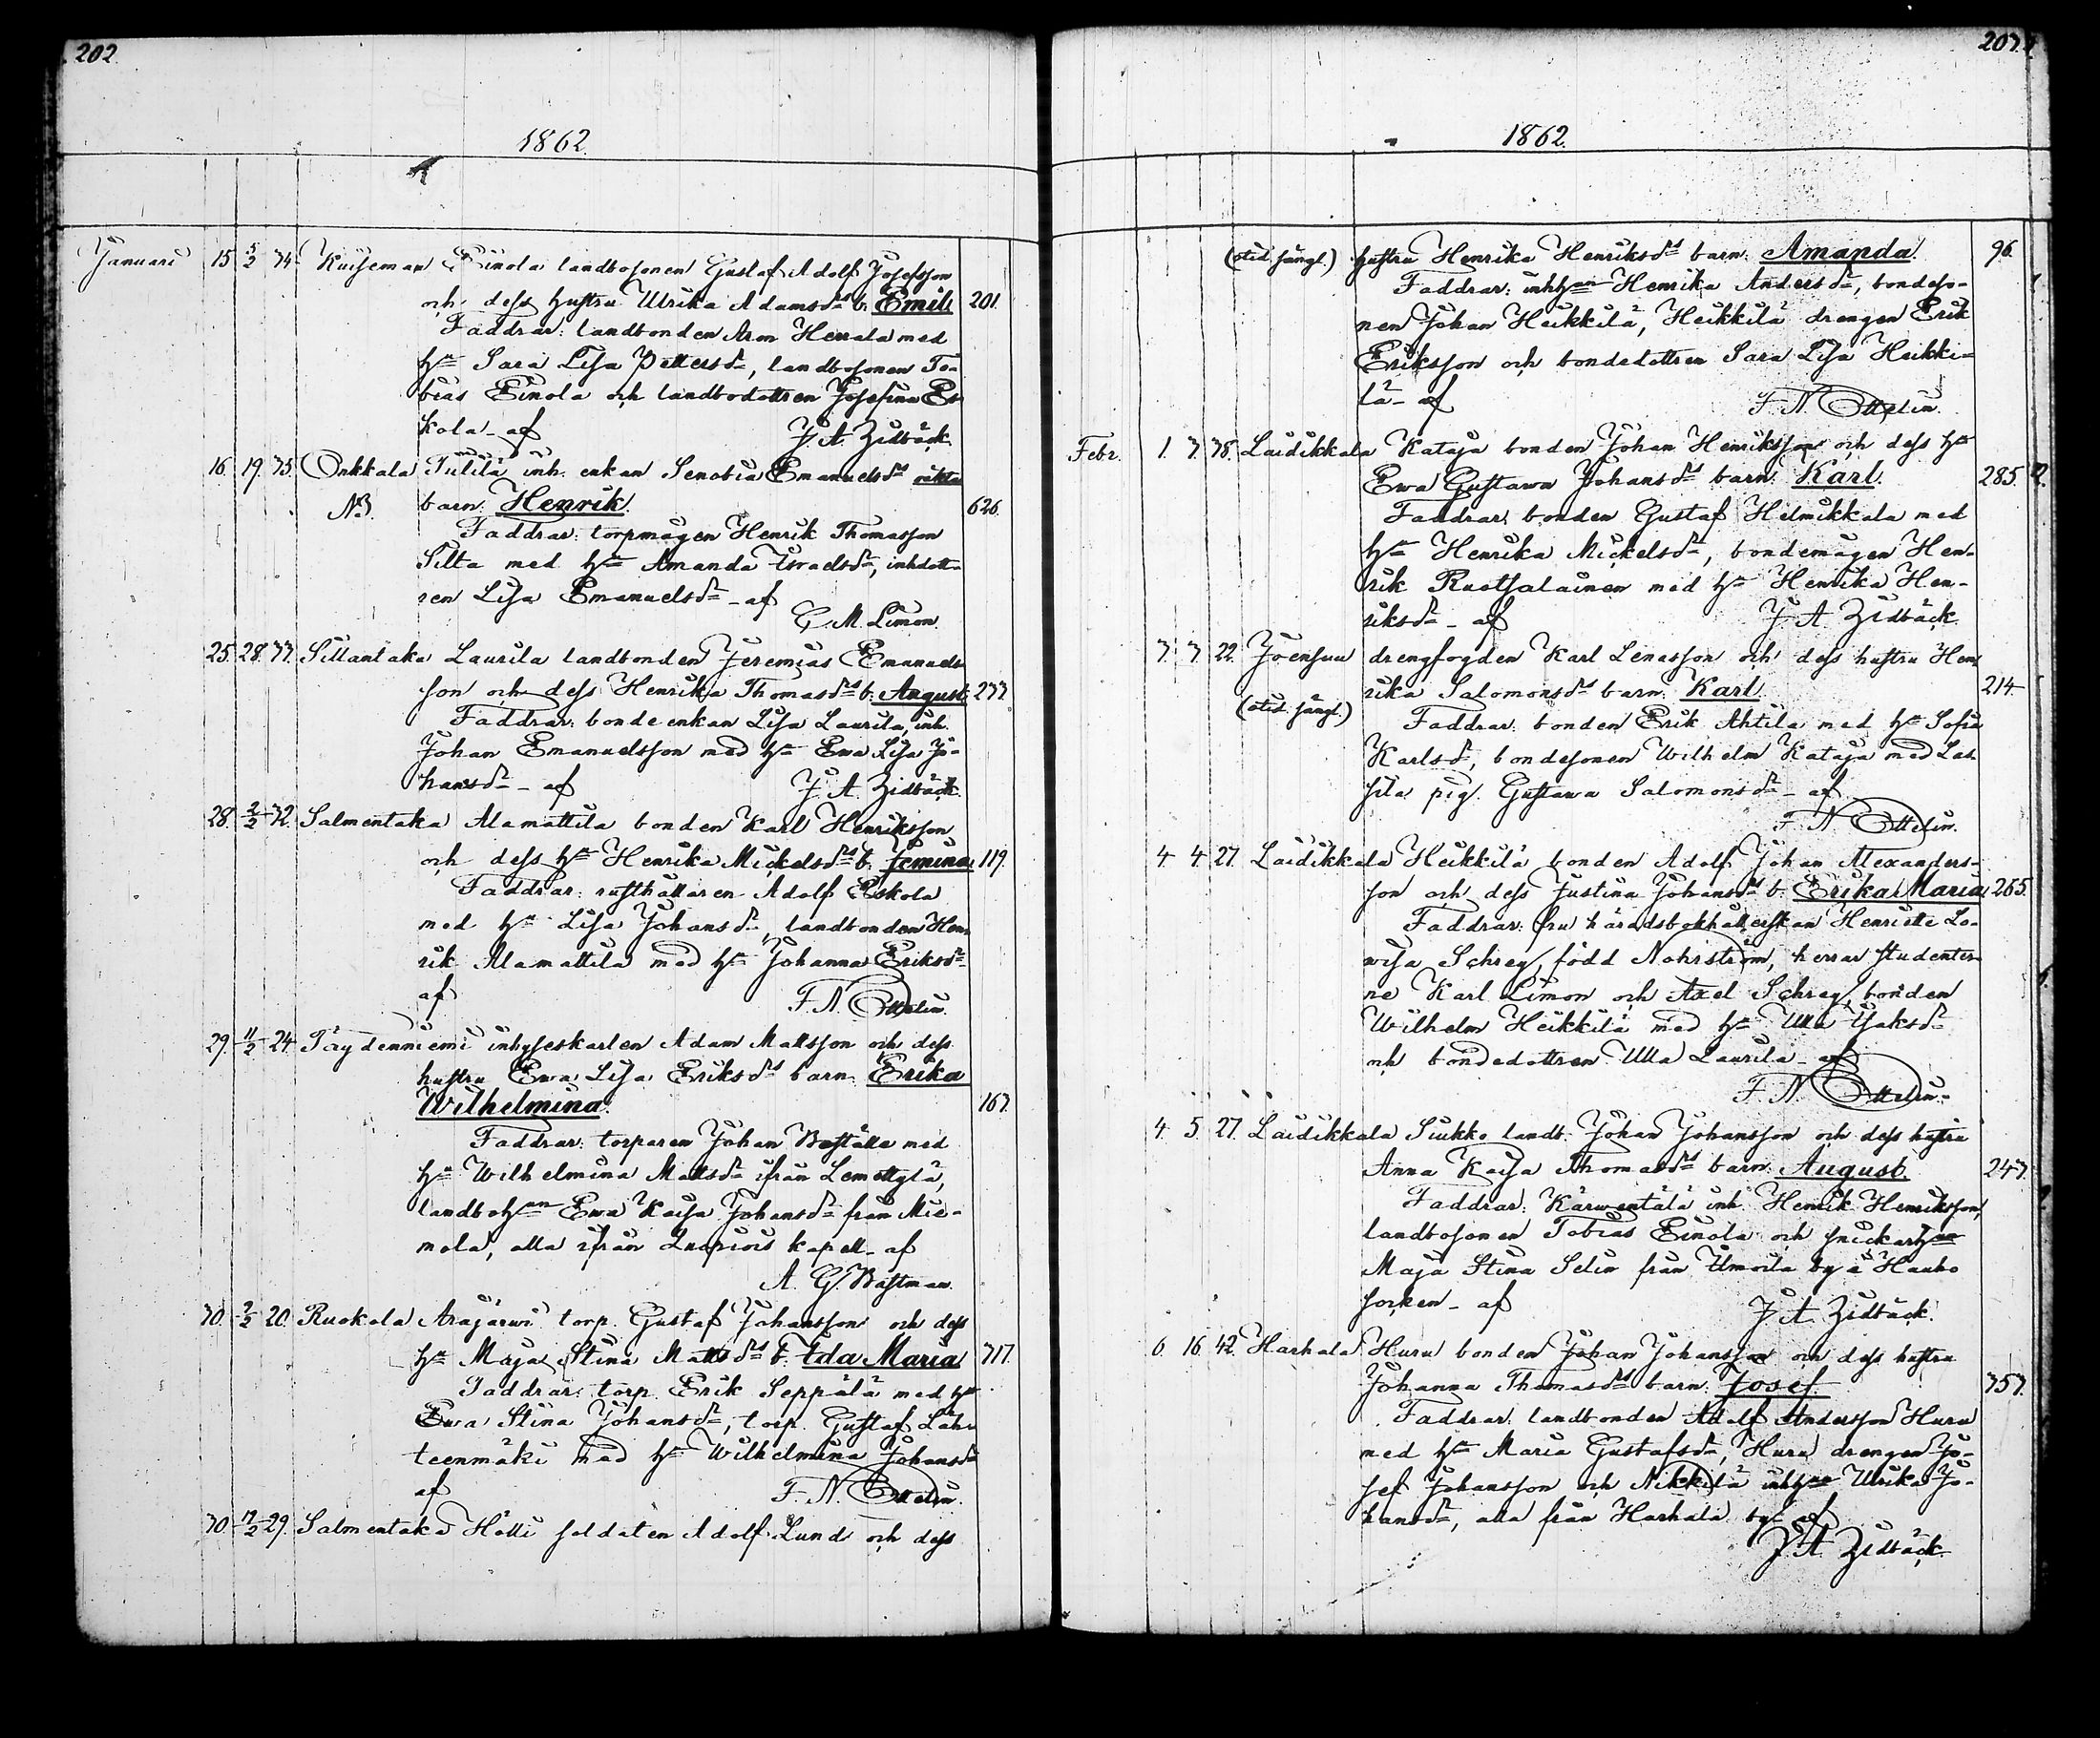 202.
1862.
Januari 15 5/2 34 Kuiseman Einola landbosonen Gustaf Adolf Josefsson
och dess hustru Ulrika Adamsdrs b. Emil 201.
Faddrar: landbonden Aron Herrala med
h:n Sara Lisa Pettersdr, landbosonen To-
bias Einola och landbodottren Josefina Es-
kola - af J. A. Zidbäck.
16 19. 35. Onkkala Tulila inh. enkan Senobia Emanuelsdrs oäkta
NB. barn Henrik. 626.
Faddrar: torpmågen Henrik Thomasson
Silta med h:n Amanda Israelsdr, inhdott-
ren Lisa Emanuelsdr - af
G. M. Limon.
25. 28. 33. Sillantaka Laurila landbonden Jeremias Emanuels-
son och dess Henrika Thomasdrs b. August. 233.
Faddrar: bondeenkan Lisa Laurila, inh.
Johan Emanuelsson med h:n Ewa Lisa Jo-
hansdr - af J. A. Zidbäck.
28. 2/2 32. Salmentaka Alamattila bonden Karl Henriksson
och dess h:n Henrika Mickelsdrs b. Femina 119.
Faddrar: rusthållaren Adolf Eskola
med h:n Lisa Johansdr, landbonden Hen-
rik Alamattila med h:n Johanna Eriksdr-
af F. N. Ottelin.
29. 11/2 24. Täydenniemi inhyseskarlen Adam Mattsson och dess
hustru Ewa Lisa Eriksdrs barn Erika
Wilhelmina. 163.
Faddrar: torparen Johan Boställe med
h:n Wilhelmina Mattsdr ifrån Lemettylä,
landboh:an Ewa Kaisa Johansdr från Mie-
mola, alla ifrån Luopiois kapell - af
A. G. Bastman.
30. 2/2 20. Ruokola Arajärwi torp. Gustaf Johansson och dess
h:n Maja Stina Mattsdrs b. Ida Maria 317.
Faddrar: torp. Erik Seppälä med h:n
Ewa Stina Johansdr, torp. Gustaf Läh-
teenmäki med h:n Wilhelmina Johansdr
af F. N. Ottelin.
30. 17/2 29. Salmentaka Hölli soldaten Adolf Lund och dess
203.
1862.
hustru Henrika Henriksdrs barn: Amanda. 96.
Faddrar: inhh:an Henrika Andersdr, bondeso-
nen Johan Heikkilä, Heikkilä drengen Erik
Eriksson och bondedottren Sara Lisa Heikki-
lä - af F. N. Ottelin.
Febr. 1. 3. 38. Laidikkala Kataja bonden Johan Henriksson och dess h:n
Ewa Gustawa Johansdrs barn: Karl. 285.
Faddrar: bonden Gustaf Helmikkala med
h:n Henrika Mickelsdr, bondemågen Hen-
rik Ruotsalainen med h:n Henrika Hen-
riksdr - af J. A. Zidbäck.
3. 3. 22. Joensuu drengfogden Karl Lenasson och dess hustru Hen-
rika Salomonsdrs barn: Karl. 214.
Faddrar: bonden Erik Ahtila med h:n Sofia
Karlsdr, bondesonen Wilhelm Kataja med Las-
sila pig. Gustawa Salomonsdr - af
F. N. Ottelin.
4. 4. 27. Laidikkala Heikkilä bonden Adolf Johan Alexanders-
son och dess Justina Johansdrs b. Erika Maria 265.
Faddrar: fru häradsbokhållerskan Henriette Lo-
wisa Schrey, född Nohrström, herrar studenter-
ne Karl Limon och Axel Schrey, bonden
Wilhelm Heikkilä med h:n Ulla Isaksdr
och bondedottren Ulla Laurila - af
F. N. Ottelin.
4. 5. 27. Laidikkala Siukko landb. Johan Johansson och dess hustru
Anna Kaisa Thomasdrs barn: August. 243.
Faddrar: Kärwentälä inh. Henrik Henriksson,
landbosonen Tobias Einola och snickarh:an
Maja Stina Selin från Ilmoila by i Hauho
socken - af J. A. Zidbäck.
6. 16. 42. Harhala Huru bonden Johan Johansson och dess hustru
Johanna Thomasdrs barn: Josef. 353.
Faddrar: landbonden Adolf Andersson Huru
med h:n Maria Gustafsdr, Huru drengen Jo-
sef Johansson och Nikkilä inhh:an Ulrika Jo-
hansdr, alla från Harhala by - af
J. A. Zidbäck.